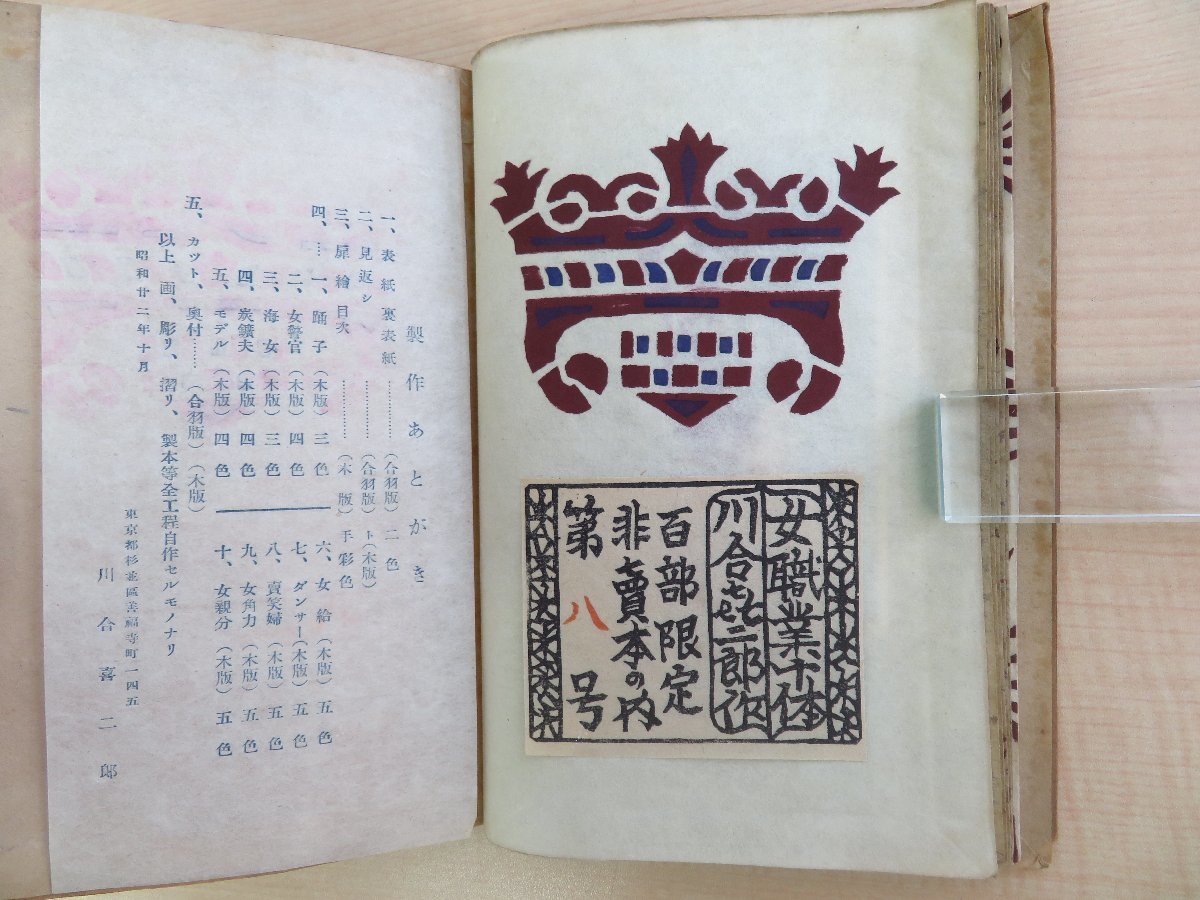 女職業十体
川合喜二郎作
百部限定
非賣本の内
第八号
製作あとがき
一、表紙裏表紙…………(合羽版)二色
二、見返シ…………(合羽版)ト(木版)
三、扉繪目次…………(木版)手彩色
四、…一、踊子(木版)三色 六、女給(木版)五色
二、女警官(木版)四色 七、ダンサー(木版)五色
三、海女(木版)三色 八、賣笑婦(木版)五色
四、炭鑛夫(木版)四色 九、女角力(木版)五色
五、モデル(木版)四色 十、女親分(木版)五色
五、カツト、奥付……(合羽版)(木版)
以上 画、彫リ、摺リ、製本等全工程自作セルモノナリ
昭和廿二年十月
東京都杉並區善福寺町一四五
川合喜二郎